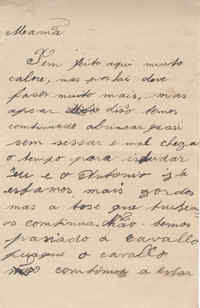 Mamã
Tem feito aqui muito
calore, mas por lai deve
fazer muito mais, mas
apezar disso temos
continuado a brincar quasi
sem sessar e mal chega
o tempo para estudar
Eu e o Antonio já
estamos mais gordos
mas a tose que truxe
os continua. Não temos
pasiado a cavallo
purque o cavallo
continua a estar